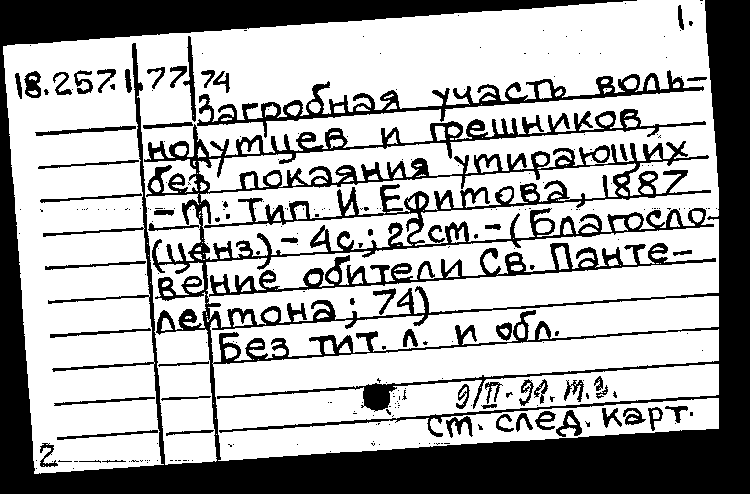 1.
18.257.1.77.74
Загробная участь воль-
нодумцев и грешников,
без покаяния умирающих
.- М.: Тип. И. Ефимова, 1887
(ценз.).- 4с.; 22см.- (Благосло-
вение обители Св. Панте-
леймона; 74)
Без тит. л. и обл.
9/II-94. м.з.
См. след. карт.
2